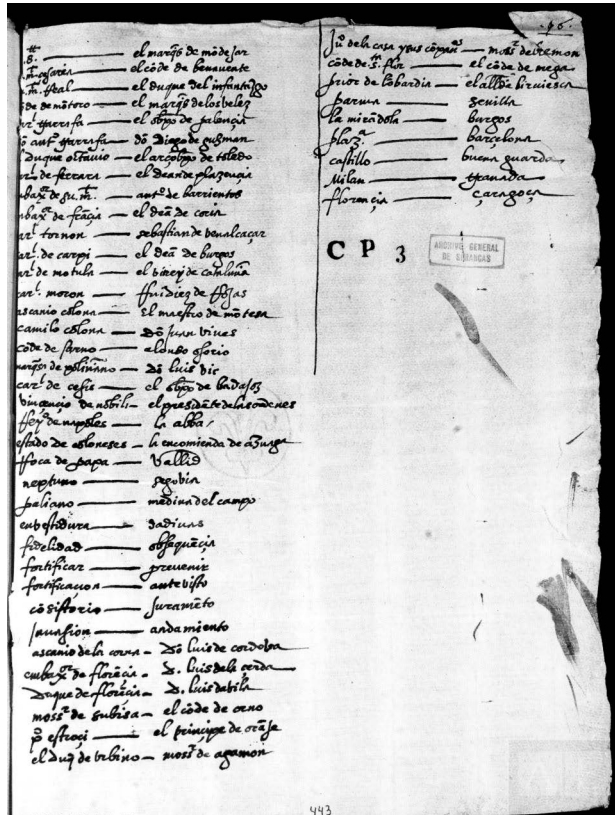 el marq̃s de mõdejar
cesarea — el cõde de benavente
el duque del infantazgo
de mõtoro — el marq̃s delos belez
garrafa — el obpo de palencia
ant° garrafa — dõ Diego de guzman
Duque octavio — el arçobpo de toledo
de ferrara — el dean de plazencia
de su. m. — ant° de barrientos
de frãcia — el deã de coria
tornon — sebastian de benalcaçar
carˡ. de carpi — el deã de burgos
carˡ de motula — el birey de cataluña
carˡ. moron — frui diez de Rojas
ascanio colona — El maestro de mõtesa
camilo colona — Dõ juan vives
cõde de sarno — alonso osorio
marq̃s de poliniano — dõ luis vic
carˡ de cesis — el obpo de badajoz
vincencio de nobili — el presidẽte de las ordenes
Rey° de napoles — la abba
estado de coloneses — la encomienda de azuaga
Roca de papa — Vallid
neptuno — segovia
paliano — medina del campo
enbestidura — dadivas
fidelidad — obsequẽcia
fortificar — prevenir
fortificacion — antevisto
cõsistorio — Juramẽto
Jnvasion — andamiento
ascanio dela corna — Dõ luis de cordova
enbaxᵒʳ de florẽcia — D. luis dela cerda
Duque de florẽcia — D. luis davila
mossʳ de subisa — el cõde de orno
p° estroci — el principe de orãje
el duq̃ de urbino — mossʳ de agamon
96.
Ju° dela casa y sus cõpañˢ — mossʳ de bremon
cõde de Sᵗᵃ. flor — el cõde de mega
prior de lõbardia — el allde birviesca
parma — sevilla
la mirãdola — burgos
plazᵃ — barcelona
castillo — buena guarda
Milan — granada
florencia — çaragoça
C P 3
ARCHIVO GENERAL
DE SIMANCAS
443